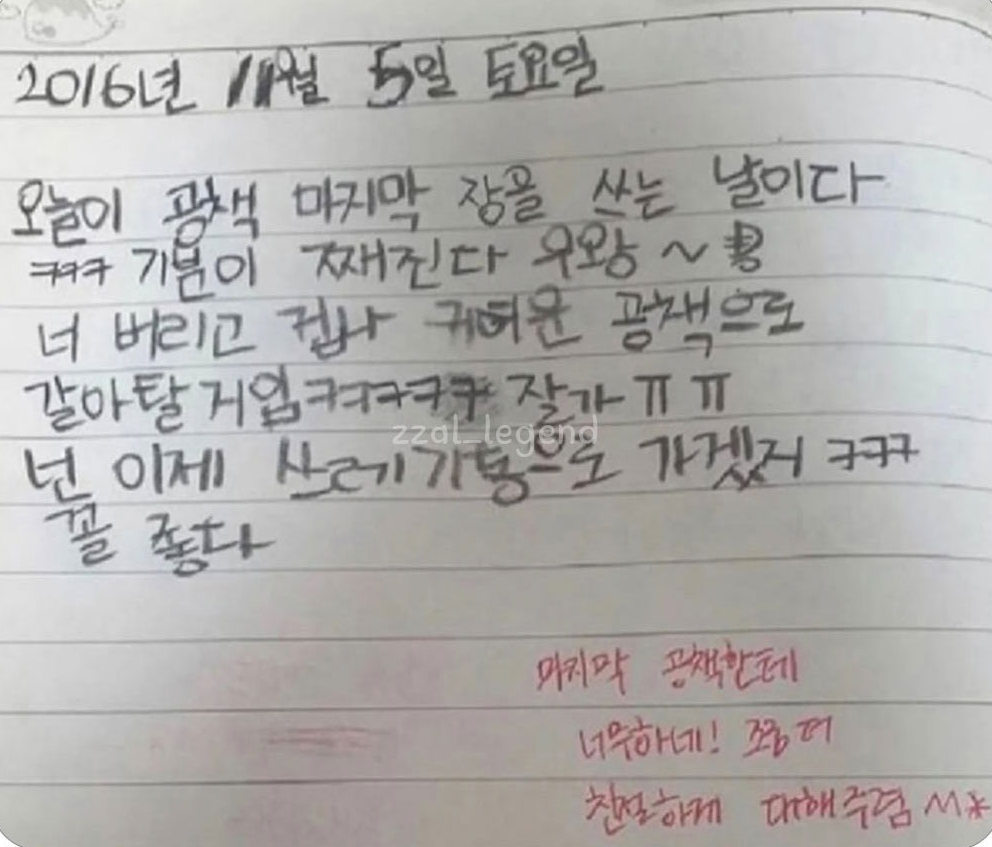 2016년 11월 5일 토요일
오늘이 공책 마지막 장을 쓰는 날이다
ㅋㅋㅋ 기분이 째진다 우왕~
너 버리고 겁나 귀여운 공책으로
갈아탈거임ㅋㅋㅋㅋㅋ 잘가ㅠㅠ
넌 이제 쓰레기통으로 가겠지 ㅋㅋㅋ
꼴 좋다
마지막 공책한테
너무하네! 조금 더
친절하게 대해주렴 ^^*
zzal_legend